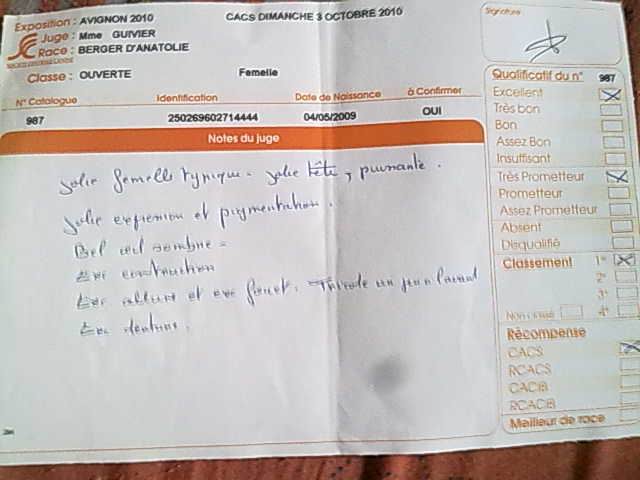 Exposition : AVIGNON 2010 CACS DIMANCHE 3 OCTOBRE 2010
Juge : Mme GUIVIER
Race : BERGER D'ANATOLIE
Classe : OUVERTE Femelle
N° Catalogue Identification Date de Naissance à Confirmer
987 250269602714444 04/05/2009 OUI
Notes du juge
Jolie femelle typique. Jolie tête, puissante.
Jolie expression et pigmentation.
Bel oeil sombre
Exc construction
Exc allure et exc fouet. un peu l'avant
Exc denture.
Signature
Qualificatif du n° 987
Excellent
Très bon
Bon
Assez Bon
Insuffisant
Très Prometteur
Prometteur
Assez Prometteur
Absent
Disqualifié
Classement 1°
2°
3°
Non classé 4°
Récompense
CACS
RCACS
CACIB
RCACIB
Meilleur de race